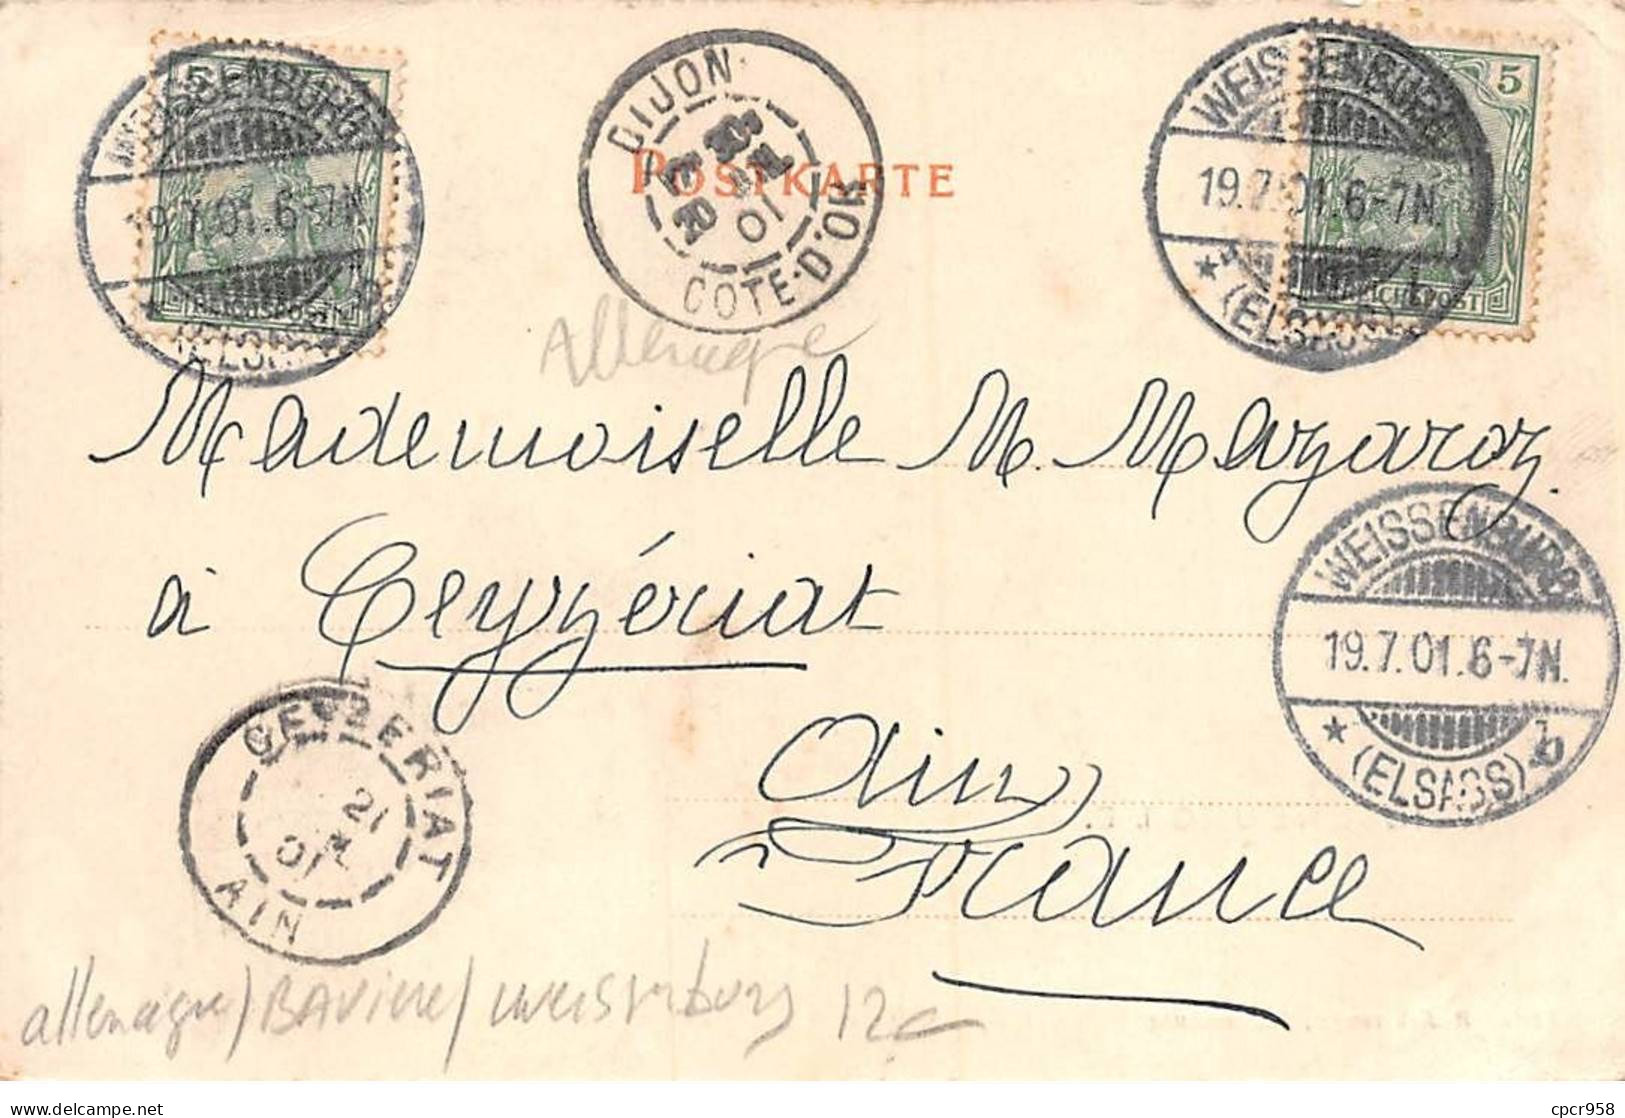 5
WEISSENBURG
19.7.01.6-7N.
(ELSASS)
REICHSPOST
DIJON
01
COTE-D'OR
POSTKARTE
WEISSENBURG
5
19.7.01.6-7N.
* (ELSASS) b
REICHSPOST
allemagne
Mademoiselle M. Mazaroz.
à Ceyzériat
Ain
France
WEISSENBURG
19.7.01.6-7N.
* (ELSASS) b
CEYZERIAT
21
01
AIN
allemagne/BAViere/ 12€
cpcr958